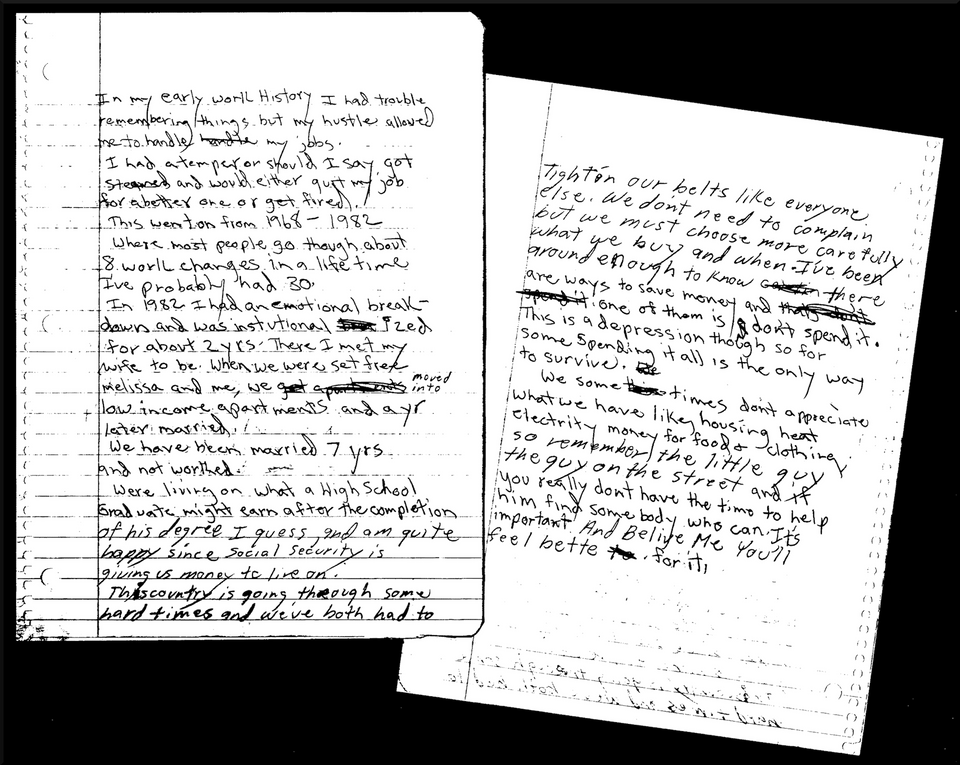 In my early work History I had trouble
remembering things but my hustle allowed
me to handle handle my jobs.
I had a temper or should I say got
steamed and would either quit my job
for a better one or get fired.
This went on from 1968 - 1982
Where most people go though about
8 work changes in a life time
I've probably had 30.
In 1982 I had an emotional break-
down and was institutional ized
for about 2 yrs. There I met my
wife to be. When we were set free
melissa and me, we get apartments moved into
low income apartments and a yr
later married.
We have been married 7 yrs
and not worked.
Were living on what a High School
Graduate might earn after the completion
of his degree I guess and am quite
happy since Social Security is
giving us money to live on.
This country is going through some
hard times and we've both had to
Tighten our belts like everyone
else. We dont need to complain
but we must choose more carefully
what we buy and when. I've been
around enough to know there
are ways to save money and thats dont
spend it. one of them is dont spend it.
This is a depression though so for
some spending it all is the only way
to survive.
We some times dont appreciate
what we have like housing heat
electrity money for food & clothing
so remember the little guy
the guy on the street and if
you really dont have the time to help
him find somebody who can. It's
important And Belive Me You'll
feel bette for it!